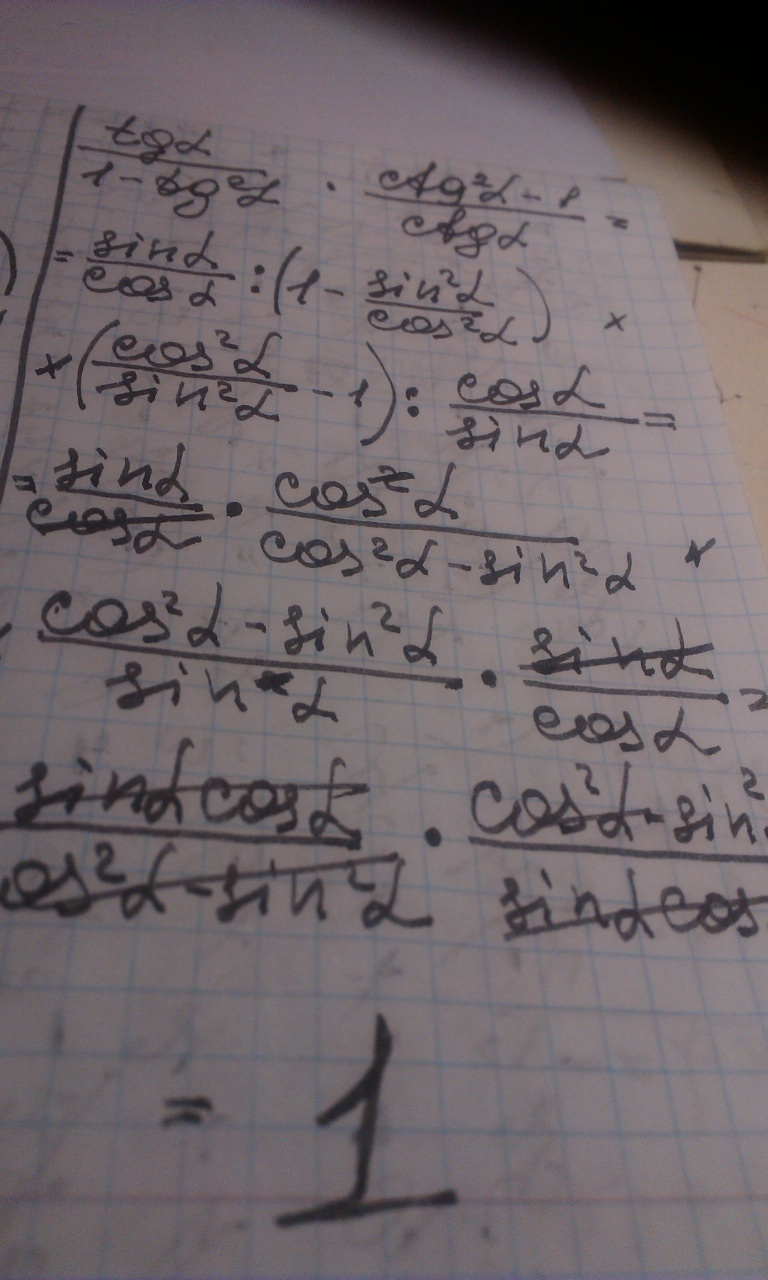 tgα / (1 - tg²α) · (ctg²α - 1) / ctgα =
= sinα / cosα : (1 - sin²α / cos²α) ×
× (cos²α / sin²α - 1) : cosα / sinα =
= sinα / cosα · cos²α / (cos²α - sin²α) ×
(cos²α - sin²α) / sin²α · sinα / cosα =
sinα cosα / (cos²α - sin²α) · (cos²α - sin²) / (sinα cos)
= 1